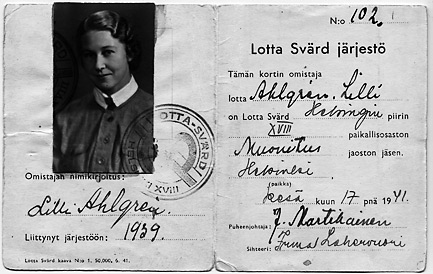 LOTTA-SVÄRD
XVIII
Omistajan nimikirjoitus:
Lilli Ahlgren.
Liittynyt järjestöön: 1939.
Lotta Svärd kaava N:o 1. 50,000. 6. 41.
N:o 102.
Lotta Svärd järjestö
Tämän kortin omistaja
lotta Ahlgrén, Lilli
on Lotta Svärd Helsingin piirin
XVIII paikallisosaston
Muonitus jaoston jäsen.
Helsinki
(paikka)
kesä kuun 17 pnä 1941.
Puheenjohtaja: Martikainen
Sihteeri: Irma